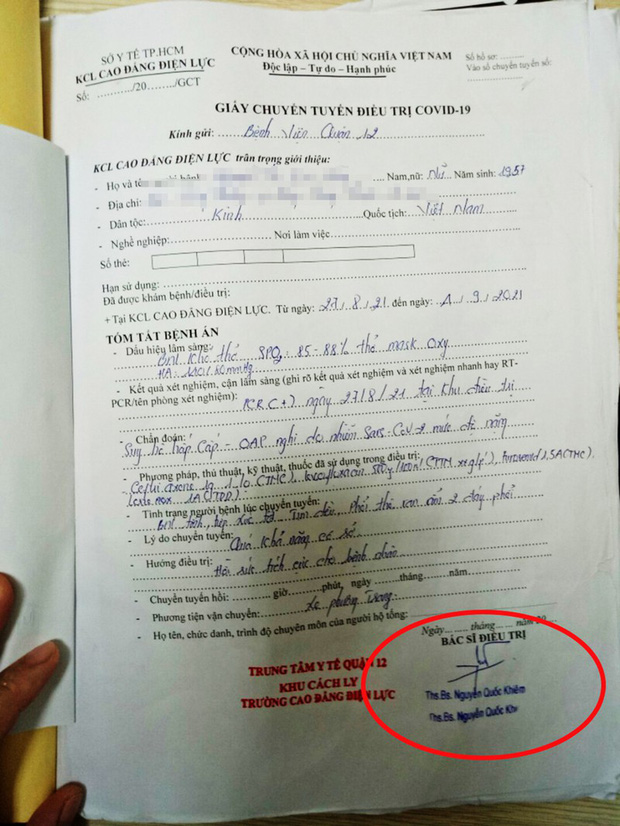 SỞ Y TẾ TP.HCM
KCL CAO ĐẲNG ĐIỆN LỰC
Số: ........../20......../GCT
CỘNG HÒA XÃ HỘI CHỦ NGHĨA VIỆT NAM
Độc lập – Tự do – Hạnh phúc
Số hồ sơ: ..........
Vào sổ chuyển tuyến số:
GIẤY CHUYỂN TUYẾN ĐIỀU TRỊ COVID-19
Kính gửi: Bệnh Viện Quận 12
KCL CAO ĐẲNG ĐIỆN LỰC trân trọng giới thiệu:
- Họ và tên Nam,nữ: Nữ Năm sinh: 1957
- Địa chỉ:
- Dân tộc: Kinh Quốc tịch: Việt Nam
- Nghề nghiệp: Nơi làm việc
Số thẻ:
Hạn sử dụng:
Đã được khám bệnh/điều trị:
+Tại KCL CAO ĐẲNG ĐIỆN LỰC. Từ ngày: 27/8/21 đến ngày: 1/9/2021
TÓM TẮT BỆNH ÁN
- Dấu hiệu lâm sàng:
BN khó thở, SPO2: 85-88% thở mask Oxy
HA: mmHg
- Kết quả xét nghiệm, cận lâm sàng (ghi rõ kết quả xét nghiệm và xét nghiệm nhanh hay RT-PCR/tên phòng xét nghiệm): PCR (+) ngày 27/8/21 tại khu điều trị
- Chẩn đoán:
Suy hô hấp cấp - nghi do nhiễm Sars-CoV 2 mức độ nặng
- Phương pháp, thủ thuật, kỹ thuật, thuốc đã sử dụng trong điều trị:
- Tình trạng người bệnh lúc chuyển tuyến:
BN tỉnh, tiếp xúc Tim đều, Phổi ran ẩm 2 đáy phổi
- Lý do chuyển tuyến: Quá khả năng cơ sở
- Hướng điều trị: Hồi sức tích cực cho bệnh nhân
- Chuyển tuyến hồi: giờ phút, ngày tháng năm
- Phương tiện vận chuyển: Xe Phương Trang
- Họ tên, chức danh, trình độ chuyên môn của người hộ tống:
Ngày....... tháng ....... năm 20...
BÁC SĨ ĐIỀU TRỊ
TRUNG TÂM Y TẾ QUẬN 12
KHU CÁCH LY
TRƯỜNG CAO ĐẲNG ĐIỆN LỰC
Ths.Bs. Nguyễn Quốc Khiêm
Ths.Bs. Nguyễn Quốc Khi